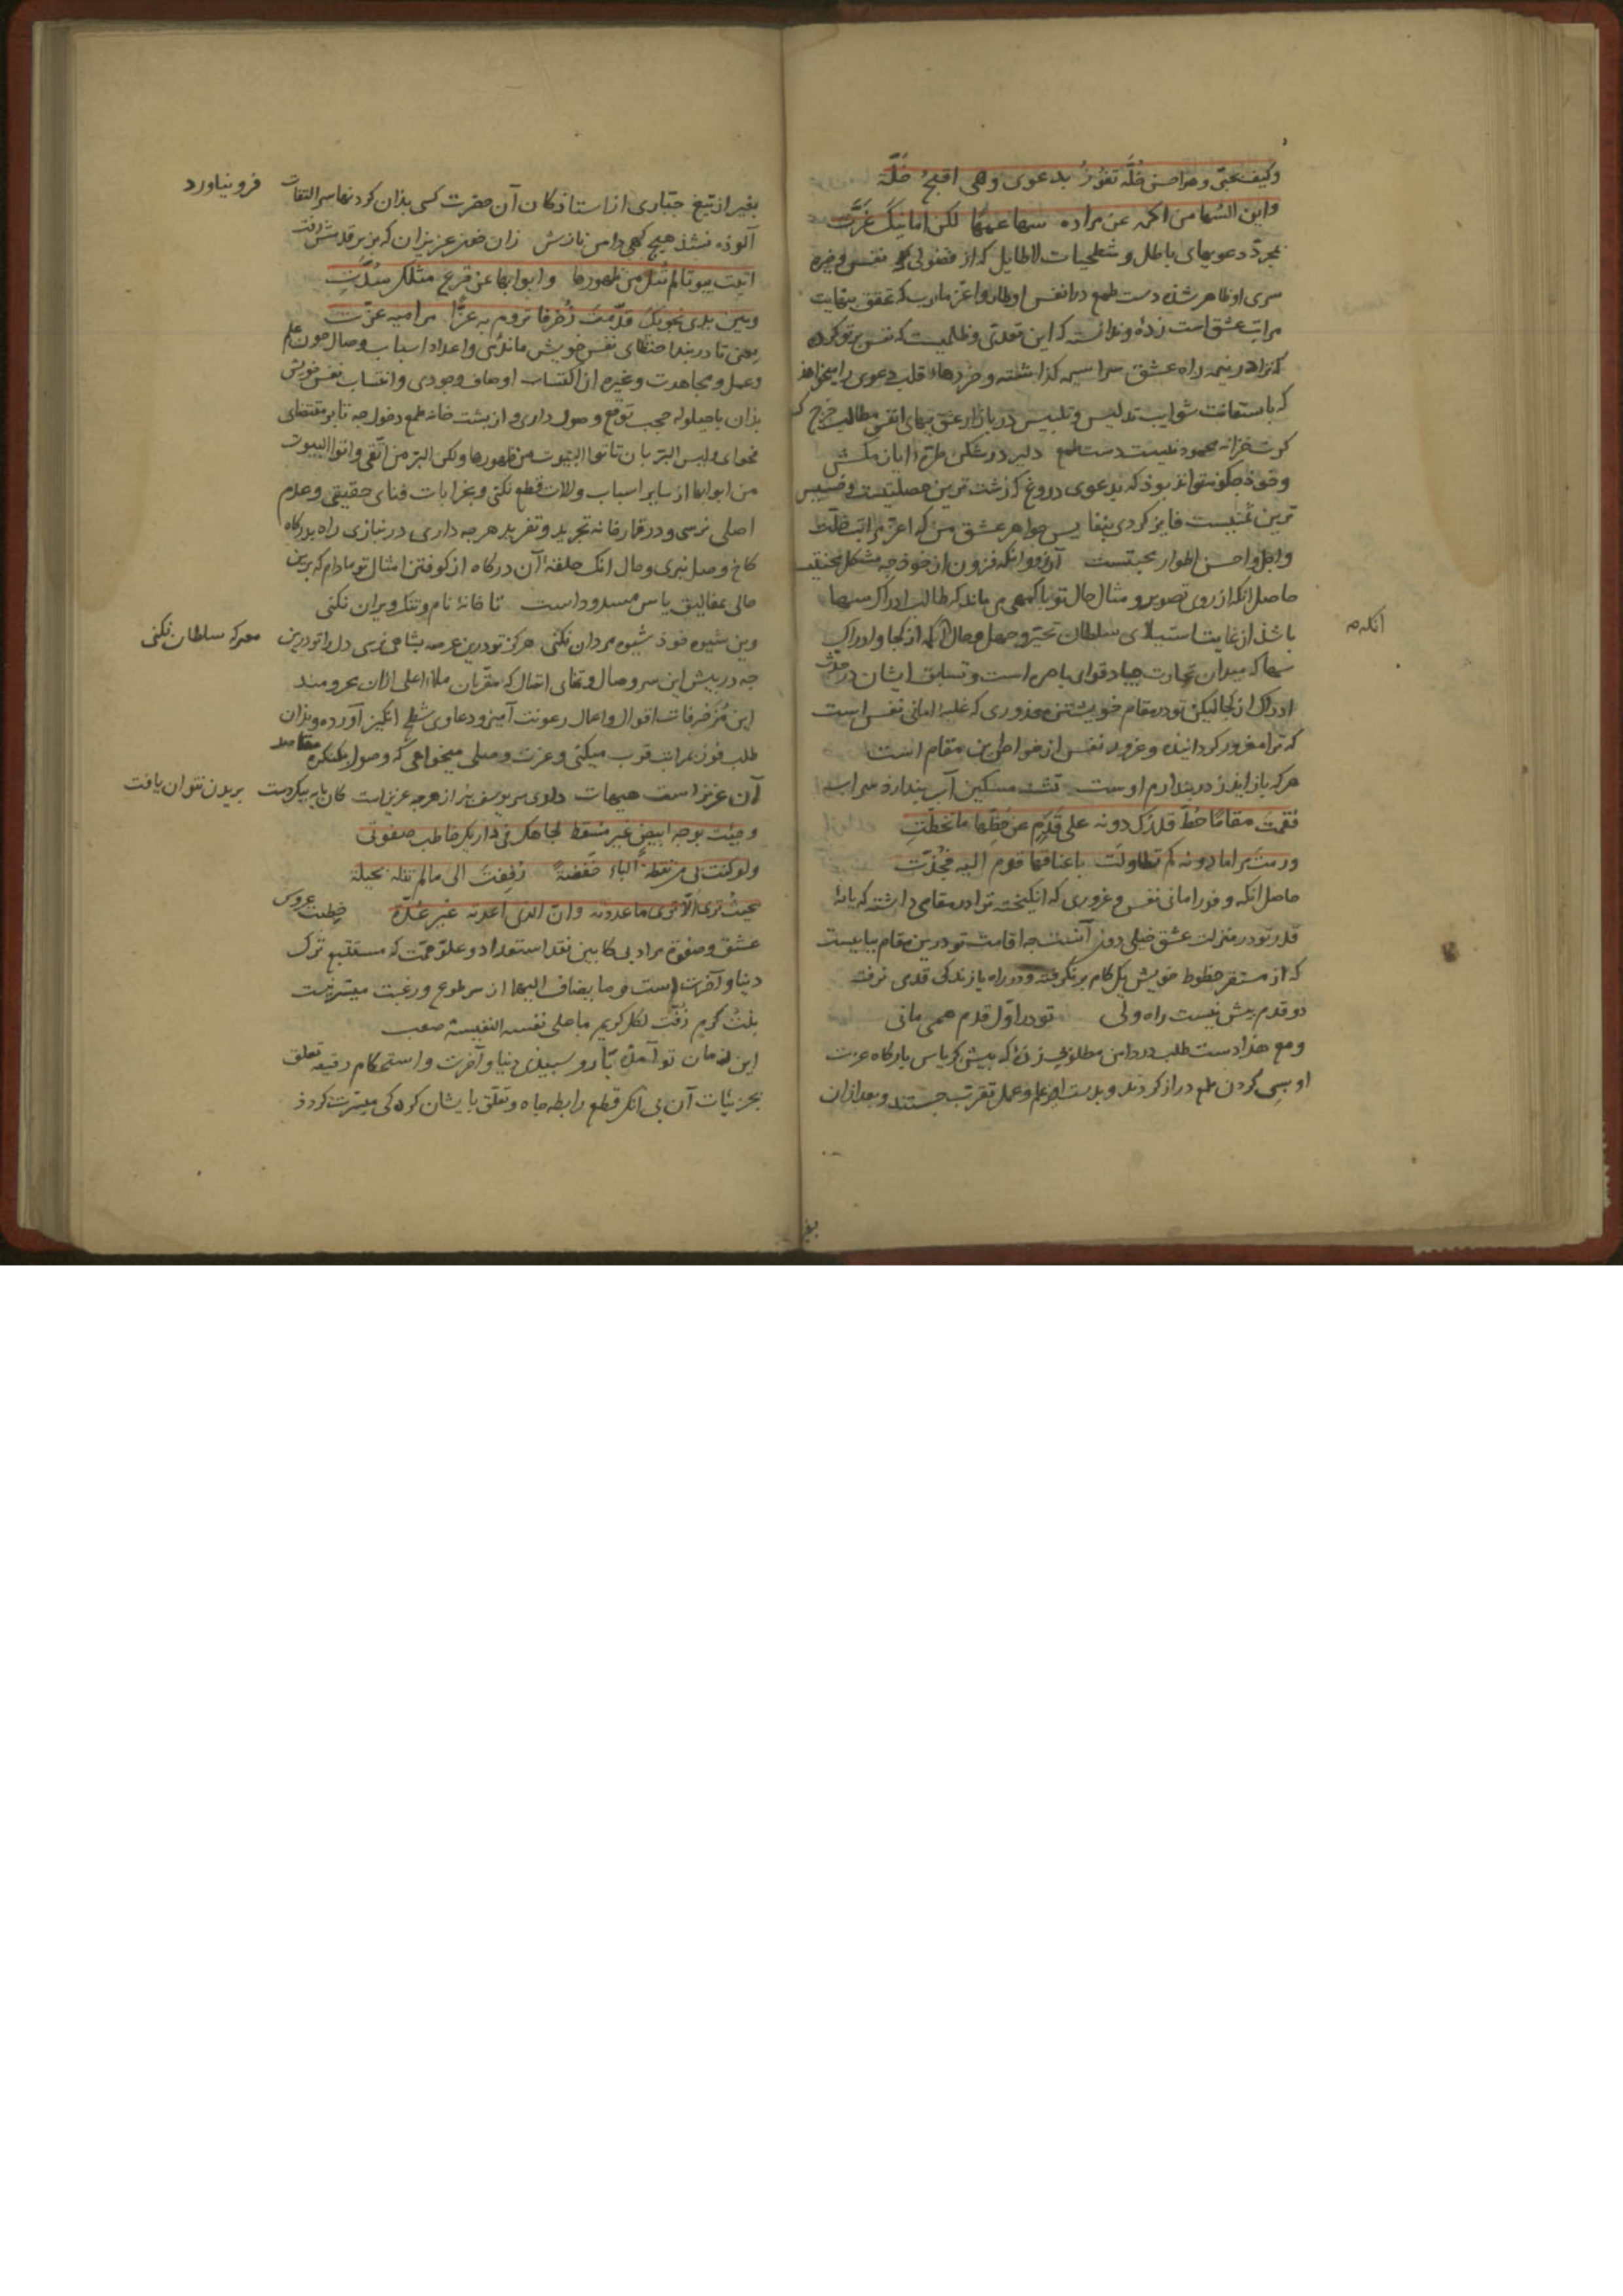 وکیف بحبّی وهو احسن خلّة تفوز بدعوی وهی اقبح خلّة
واین السها من اکمه عن مراده سها عمها لکن امانیک غرّت
بمجرّد دعویهای باطل و شطحیات لاطایل که از فضولی نفس و خیره
سری او ظاهر شده دست طمع در انفس اوطار و اعزّ مارب که تحقق بنهایت
مراتب عشق است زده و ندانسته که این تعدّی و ظلمیست که نفس بر تو کرده
که ترا در تیه راه عشق سراسیمه گذاشته و خردهاء قلب دعوی را میخواهد
که باستعانت شوایب تدلیس و تلبیس در بازار عشق ببهای انفس مطالب خرج کند
کرت خزانه محمود نیست دست طمع دلیر در شکن طرّۀ ایاز مکش
و خود چگونه تواند بود که بدعوی دروغ که زشت‌ترین خصلتیست و خسیس
ترین نفایس جواهر عشق من که اعزّ مراتب خلّت
و اجلّ و احسن اطوار محبّتست آرزو و آنکه فزون از خود چه مشکل محنتیست
حاصل آنکه از روی تصویر و مثال حال تو باکمهی می‌ماند که طالب ادراک سها
باشد از غایت استیلای سلطان تحیّر و جهل و حال آنکه او کجا و ادراک
سها که میدان جیاد قوای باصره است و تسابق ایشان در حدّت
ادراک از کجا لیکن تو در مقام خویشتن معذوری که غلبۀ امانی نفس است
که ترا مغرور گردانیده و غرور نفس از خواطر این مقام است
هر که باز اید ز در پندارم اوست تشنه مسکین آب پندارد سراب
فقمت مقاما حطّ قدرک دونه علی قدم عن حظّها ما تخطّت
ورمت مراما دونه کم تطاولت باعناقها قوم الیه فجذّت
حاصل آنکه وفور امانی نفس و غروری که انگیخته ترا در مقامی داشته که پایۀ
قدر تو در منزلت عشق خیلی دون آنست چه اقامت تو درین مقام بپاییست
که از مستقر حظوظ خویش یک گام برنگرفته و در راه بازندگی قدمی نرفته
دو قدم بیش نیست راه ولی تو در اوّل قدم همی مانی
و مع هذا دست طلب در دامن مطلوبی زدۀ که پیش کریاس بارگاه عزت
او بسی گردن طمع دراز کردند و بدست‌آویز علم و عمل تقرّب جستند و بعد از آن
آنکه
بغیر
بغیر از تیغ جبّاری از استادکان آن حضرت کسی بدان گردنها سر التفات فرو نیاورد
آلوده نشد هیچ گهی دامن نازش زان خون عزیزان که بزیر قدمش رفت
اتیت بیوتا لم تنل من ظهورها وابوابها عن قرع مثلک سدّت
وبین یدی نجویک قدّمت زخرفا تروم به عزّا مرامیه عزّت
یعنی تا در بند احتظای نفس خویش ماندی و اعداد اسباب وصال چون علم
و عمل و مجاهدت و غیره از اکتساب اوصاف وجودی و انتساب نفس خویش
بدان با حیلولۀ حجب توقع وصول داری و از پشت خانه طمع دخول چه تا بر مقتضای
فحوای ولیس البرّ بان تاتوا البیوت من ظهورها ولکن البرّ من اتّقی واتوا البیوت
من ابوابها از سایر اسباب و الات قطع نکنی و بخرابات فنای حقیقی و عدم
اصلی نرسی و در قمارخانه تجرید و تفرید هرچه داری در نبازی راه بدرگاه
کاخ وصل نبری و حال آنک حلقۀ آن درگاه از کوفتن امثال تو مادام که برین
حالی بمغالیق یاس مسدود است تا خانۀ نام و ننگ ویران نکنی
وین شیوه خود شیوه مردان نکنی هرگز تو درین عرصه بشاهی نرسی دل را تو درین معرکه سلطان نکنی
چه در پیش این سر وصال و لقای اتصال که مقرّبان ملاء اعلی از آن محرومند
این مزخرفات اقوال و اعمال رعونت آمیز و دعاوی شطح انگیز آورده و بدان
طلب فوز بمراتب قرب میکنی و عزت وصلی میخواهی که وصول بکنگره مقاصد
آن عزیز است هیهات دلوی سر یوسف نیز از هرچه عزیز است کان پایه بیک دست بریدن نتوان یافت
وجئت بوجه ابیض غیر مسقط لجاهک فی داریک خاطب صفوتی
ولو کنت بی من نقطة الباء خفضة رفعت الی ما لم تنله بحیلة
بحیث تری الا تری ما عددته وان الذی اعددته غیر عدّة خطبت عروس
عشق و صفوة مرا دبی کابین نقد استعداد و علوّ همت که مستتبع ترک
دنیا و آخرتست و ما یضاف الیهما از سر طوع و رغبت میسّر نیست
بذلت کریم زفّت لکل کریم ما علی نفسه النفیسة صعب
این زمان تو آمدۀ با رو سپیدی دنیا و آخرت و استحکام رقیقه تعلق
بجزئیات آن بی آنکه قطع رابطه جاه و تعلق بایشان کرده کی میسّرت گردد